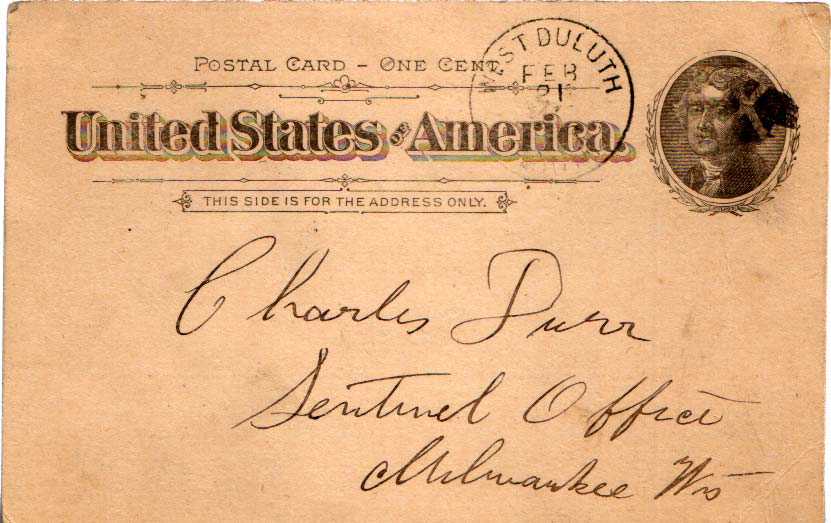 POSTAL CARD - ONE CENT.
WEST DULUTH
FEB
21
United States of America.
THIS SIDE IS FOR THE ADDRESS ONLY.
Charles Durr
Sentinel Office
Milwaukee Wis